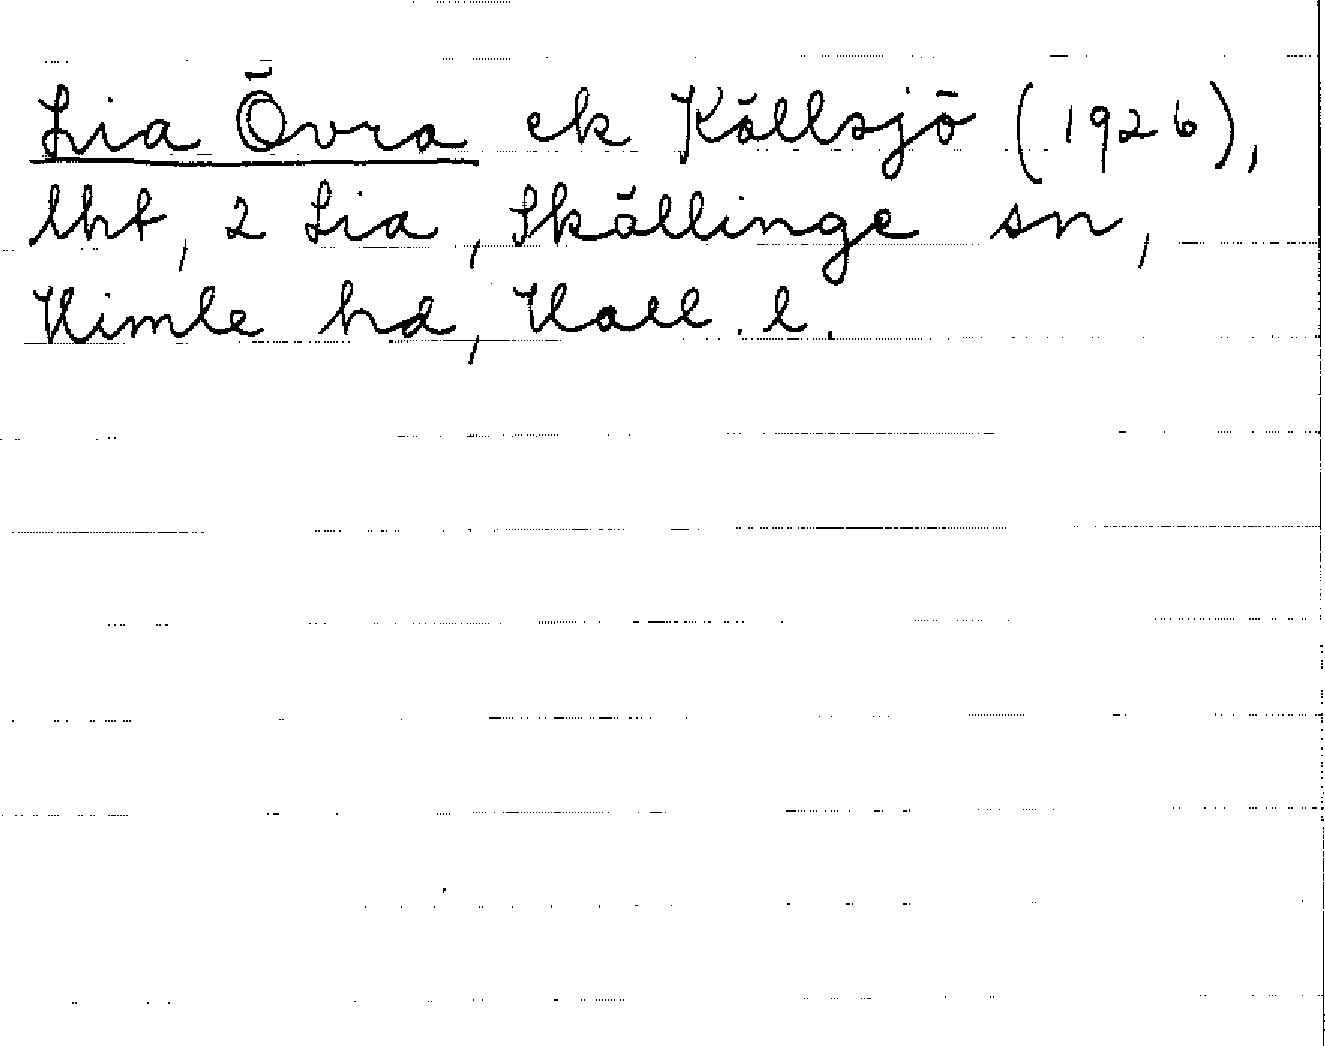 Lia Övra ek Källsjö (1926),
lht, 2 Lia, Skällinge sn,
Himle hd, Hall. l.